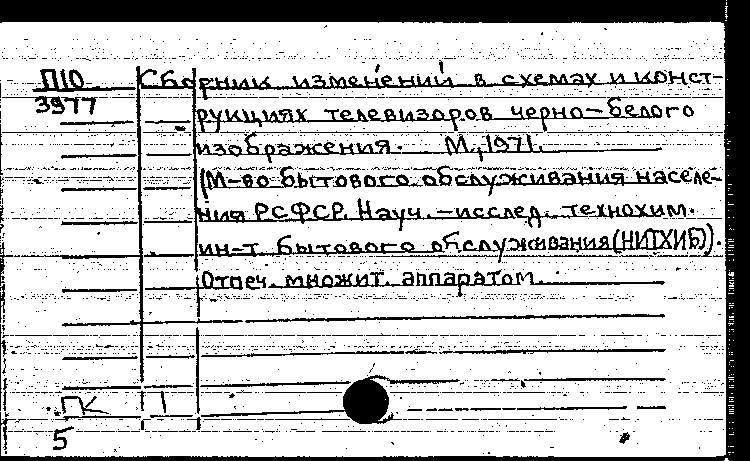 П10 Сборник изменений в схемах и конст-
3977 рукциях телевизоров черно-белого
изображения. М., 1971.
(М-во бытового обслуживания населе-
ния РСФСР. Науч.-исслед. технохим.
ин-т бытового обслуживания (НИТХИБ)).
Отпеч. множит. аппаратом.
ПК 1
5